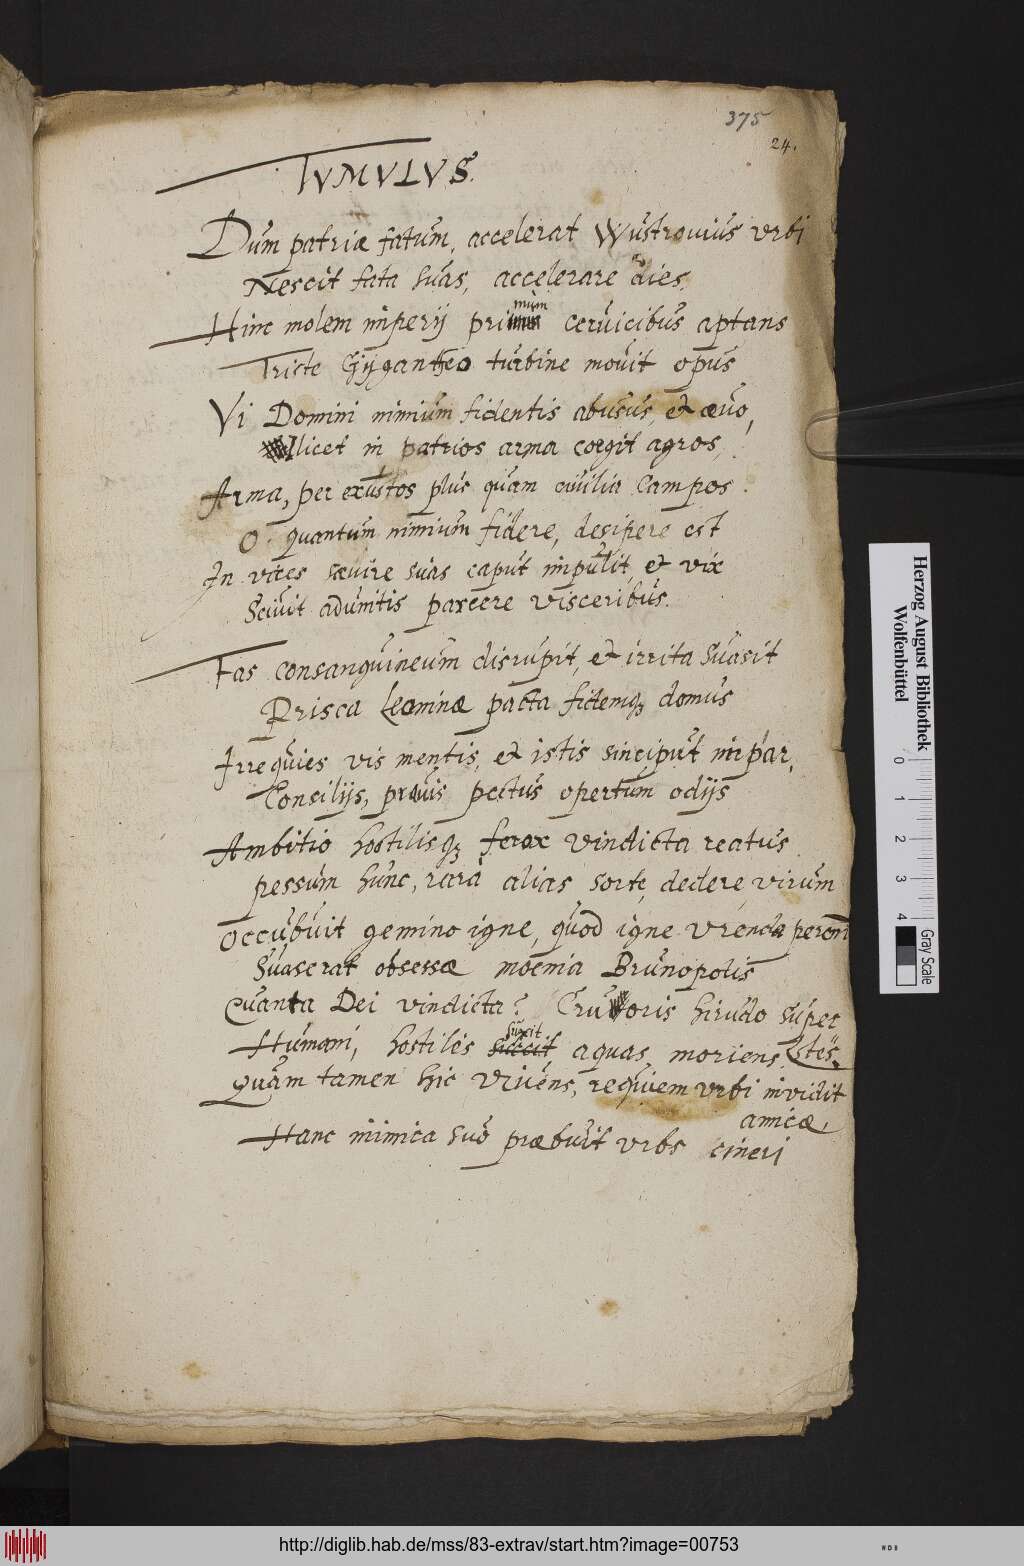 375
24.
TVMVLVS.
Dum patriæ fatum, accelerat Wustrouius vrbi
Nescit fata suas, accelerare dies,
Hinc molem imperij primum ceruicibus aptans
Triste Gygantheo turbine mouit opus
Vi Domini nimium fidentis abusus, et æuo,
Ilicet in patrios arma coegit agros,
Arma, per exustos plus quam ciuilia Campos.
O quantum nimium fidere, desipere est
In vires sæuire suas caput impulit, et vix
Sciuit adunitis parcere visceribus.
Fas consanguineum disrupit, et irrita suasit
Prisca Leoninæ pacta fidemqꝫ domus
Irrequies vis mentis, et istis sinciput impar,
Consilijs, prauis pectus opertum odijs
Ambitio hostilisqꝫ ferox vindicta reatus
pessum hunc, rara alias sorte, dedere, virum
Occubuit gemino igne, quod igne vrenda
Suaserat obsessæ moenia Brunopolis
Quanta Dei vindicta? Cruoris hirudo super
Humani, hostiles succit suxit, aquas, moriens. stes
Quam tamen hic viuens, requiem vrbi inuidit
amicæ,
Hanc inimica suo præbuit vrbs cineri
Herzog August Bibliothek
Wolfenbüttel
0 1 2 3 4
Gray Scale
http://diglib.hab.de/mss/83-extrav/start.htm?image=00753